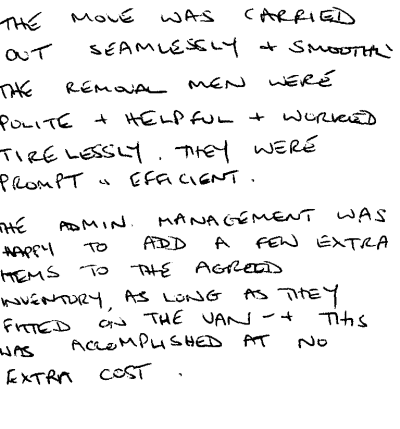 THE MOVE WAS CARRIED
OUT SEAMLESSLY + SMOOTHLY
THE REMOVAL MEN WERE
POLITE + HELPFUL + WORKED
TIRELESSLY. THEY WERE
PROMPT + EFFICIENT.
THE ADMIN. MANAGEMENT WAS
HAPPY TO ADD A FEW EXTRA
ITEMS TO THE AGREED
INVENTORY, AS LONG AS THEY
FITTED ON THE VAN - + THIS
WAS ACCOMPLISHED AT NO
EXTRA COST.